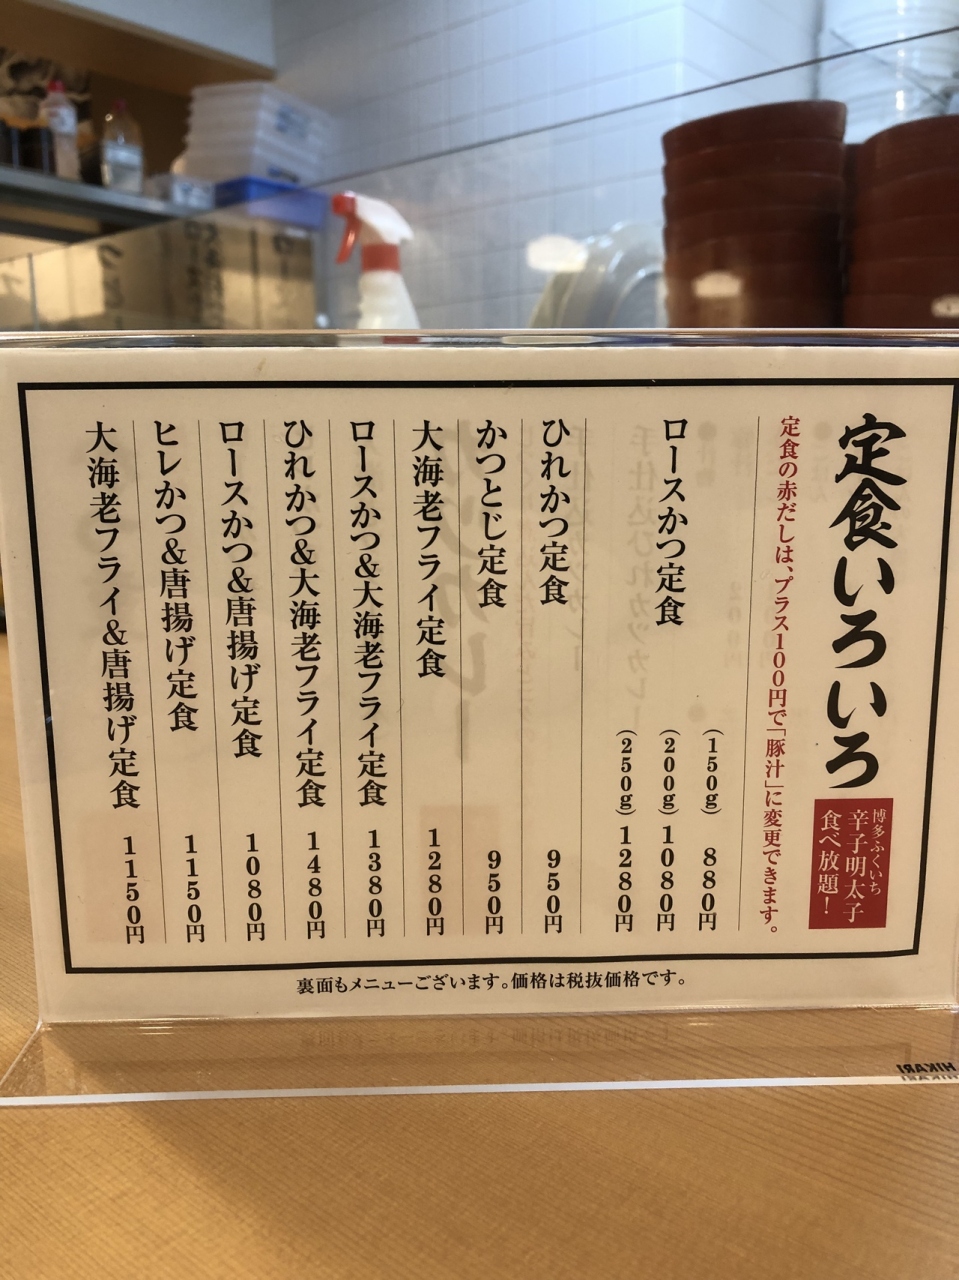 定食いろいろ
博多ふくいち
辛子明太子
食べ放題！
定食の赤だしは、プラス100円で「豚汁」に変更できます。
ロースかつ定食
（150g） 880円
（200g） 1080円
（250g） 1280円
ひれかつ定食 950円
かつとじ定食 950円
大海老フライ定食 1280円
ロースかつ&大海老フライ定食 1380円
ひれかつ&大海老フライ定食 1480円
ロースかつ&唐揚げ定食 1080円
ヒレかつ&唐揚げ定食 1150円
大海老フライ&唐揚げ定食 1150円
裏面もメニューございます。価格は税抜価格です。
HIKARI